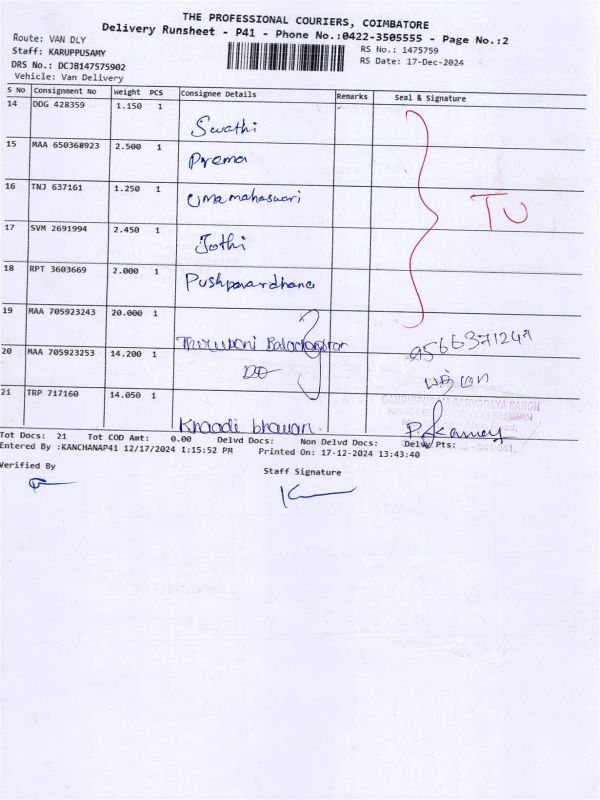 THE PROFESSIONAL COURIERS, COIMBATORE
Delivery Runsheet - P41 - Phone No.:0422-3505555 - Page No.:2
Route: VAN DLY
RS No.: 1475759
Staff: KARUPPUSAMY
RS Date: 17-Dec-2024
DRS No.: DCJB147575902
Vehicle: Van Delivery
S No Consignment No Weight PCS Consignee Details Remarks Seal & Signature
14 DDG 428359 1.150 1
Swathi
15 MAA 650368923 2.500 1
Prema
16 TNJ 637161 1.250 1
Umamahaswari
TU
17 SVM 2691994 2.450 1
Jothi
18 RPT 3603669 2.000 1
Pushpavardhana
19 MAA 705923243 20.000 1
20 MAA 705923253 14.200 1
DO
பத்மா
21 TRP 717160 14.050 1
Khaadi bhawan.
Tot Docs: 21 Tot COD Amt: 0.00 Delvd Docs: Non Delvd Docs: Delvy Pts:
Entered By :KANCHANAP41 12/17/2024 1:15:52 PM Printed On: 17-12-2024 13:43:40
Verified By
Staff Signature